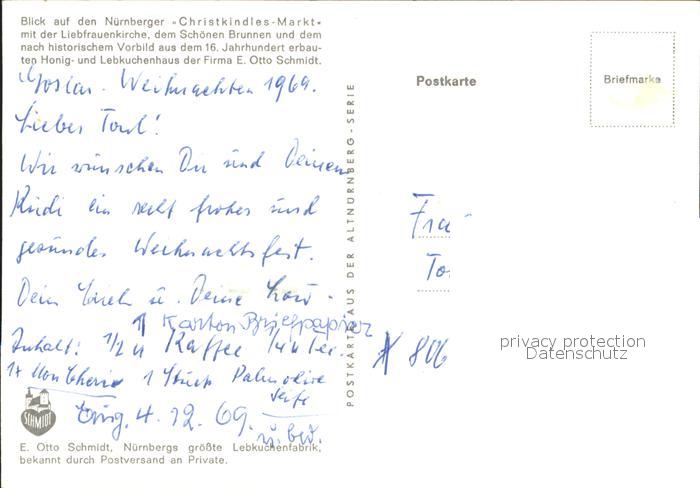 Blick auf den Nürnberger »Christkindles-Markt«
mit der Liebfrauenkirche, dem Schönen Brunnen und dem
nach historischem Vorbild aus dem 16. Jahrhundert erbau-
ten Honig- und Lebkuchenhaus der Firma E. Otto Schmidt.
Goslar. Weihnachten 1969.
Lieber Toul!
Wir wünschen Du und Deinem
Rudi ein recht frohes und
gesundes Weihnachtsfest.
Dein u. Deine
1 Karton Briefpapier
Inhalt: 1/2 Kaffee 1/4 Tee.
1x Mon Cherie 1 Stück Palmolive
Seife
Eing. 4.12.69.
u. bed.
SCHMIDT
E. Otto Schmidt, Nürnbergs größte Lebkuchenfabrik,
bekannt durch Postversand an Private.
POSTKARTE AUS DER ALTNÜRNBERG-SERIE
Postkarte
Briefmarke
Frau
To
806
privacy protection
Datenschutz